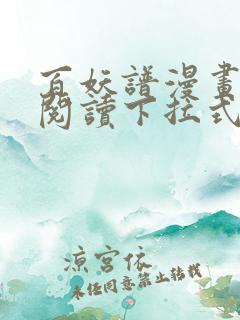 百妖譜漫畫
閱讀下拉式
涼宮依
未经同意禁止转载